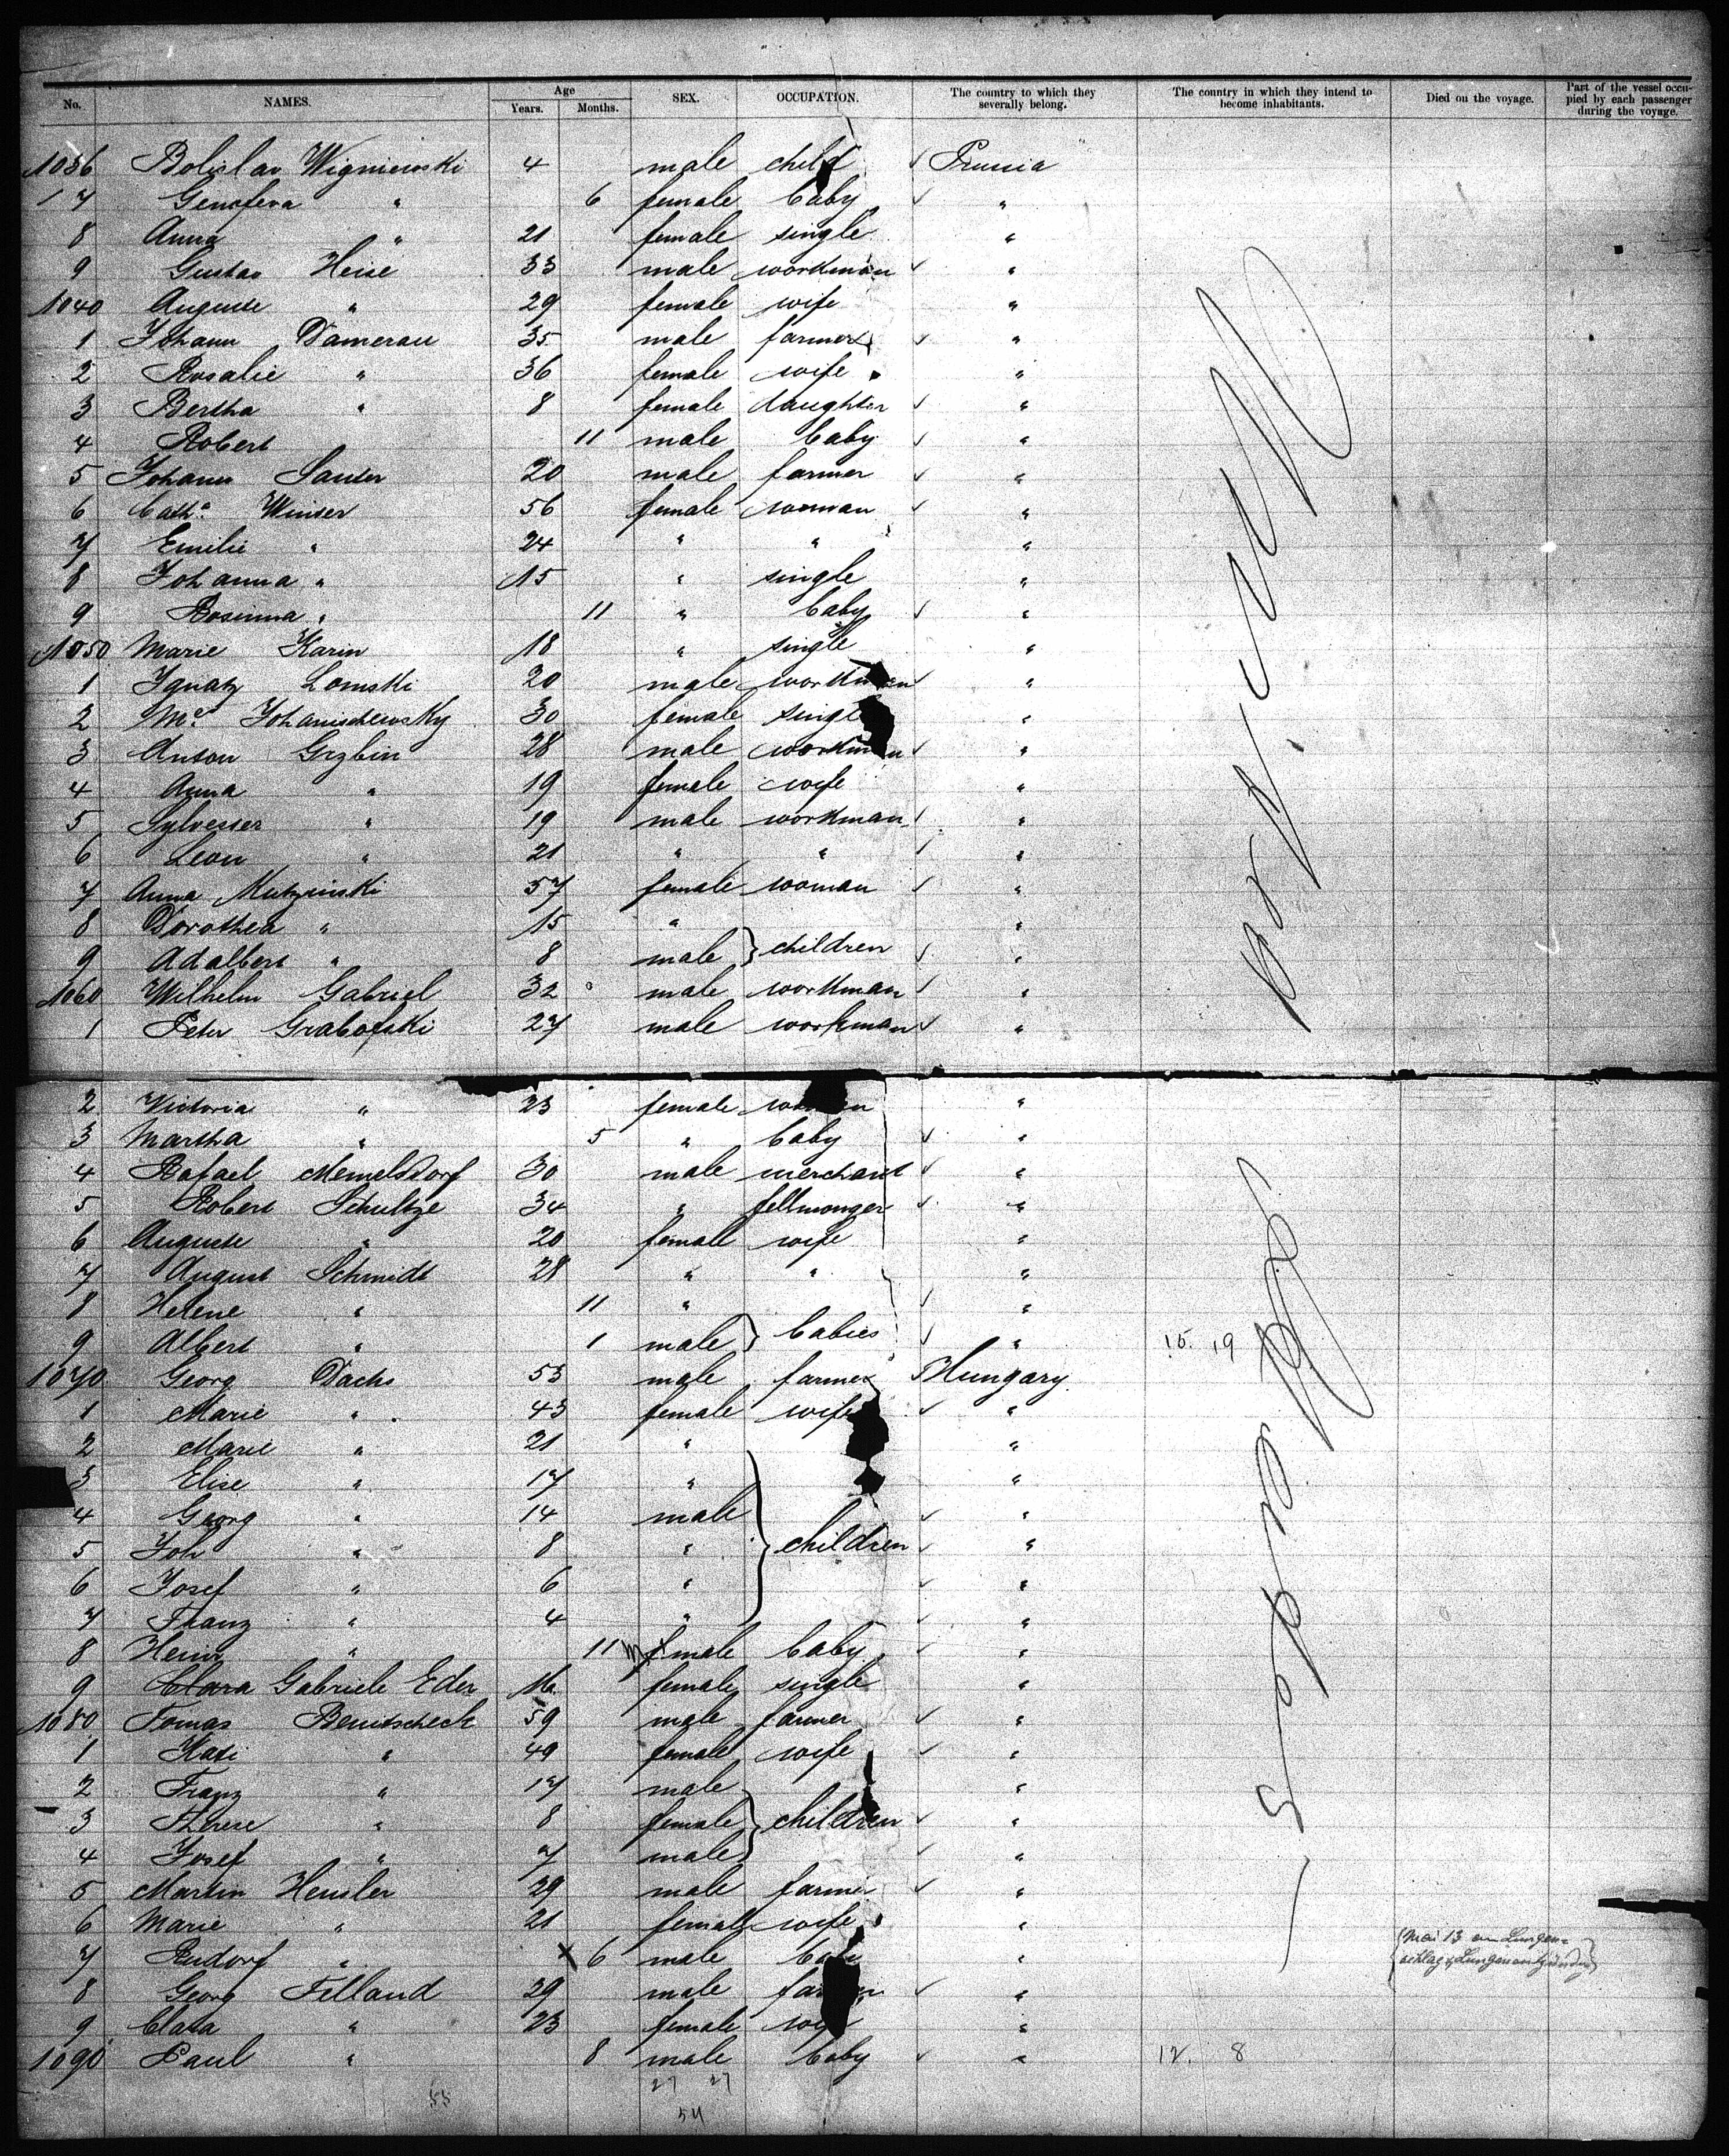 No. NAMES. Age Years. Months. SEX. OCCUPATION. The country to which they severally belong. The country in which they intend to become inhabitants. Died on the voyage. Part of the vessel occupied by each passenger during the voyage.
1036 Bolislav Wigniewski 4 male child Prussia
7 Genofeva " 6 female baby "
8 Anna " 21 female single "
9 Gustav Heise 33 male workman "
1040 Auguste " 29 female wife "
1 Johann Damerau 35 male farmer "
2 Rosalie " 36 female wife "
3 Bertha " 8 female daughter "
4 Robert 11 male baby "
5 Johann Sauter 20 male farmer "
6 Cath.a Winter 56 female woman "
7 Emilie " 24 " " "
8 Johanna " 15 " single "
9 Rosinna " 11 " baby "
1050 Marie Karin 18 " single "
1 Ignatz Lomski 20 male workman "
2 M.e Johanischewsky 30 female single "
3 Anton Grzbin 28 male workman "
4 Anna " 19 female wife "
5 Sylvester " 19 male workman "
6 Leon " 21 " " "
7 Anna Mutzinski 57 female woman "
8 Dorothea " 15 " "
9 Adalbert " 8 male } children "
1060 Wilhelm Gabriel 32 male workman "
1 Peter Grabofski 27 male workman "
2 Victoria " 23 female woman "
3 Martha " 5 " baby "
4 Rafael Memelsdorf 30 male merchant "
5 Robert Schultze 34 " fellmonger "
6 Auguste " 20 female wife "
7 August Schmidt 28 " " "
8 Helene " 11 " "
9 Albert " 1 male } babies " 15. 19
1070 Georg Dachs 53 male farmer Hungary
1 Marie " 43 female wife "
2 Marie " 21 " "
3 Elise " 17 " "
4 Georg " 14 male "
5 Joh " 8 " } children "
6 Josef " 6 " "
7 Franz " 4 " "
8 Heinr " 11 m female baby "
9 Clara Gabriele Eder 16 female single "
1080 Tomas Benitscheck 59 male farmer "
1 Kati " 49 female wife "
2 Franz " 17 male "
3 Therese " 8 female } children "
4 Josef " 7 male "
5 Martin Hensler 29 male farmer "
6 Marie " 21 female wife "
7 Rudorf " x 6 male baby " (Mai 13 an Lungenschlag & Lungenentzündung)
8 Georg Filland 29 male farmer "
9 Clara " 23 female wife "
1090 Paul " 8 male baby " 12. 8
27 27
55
54